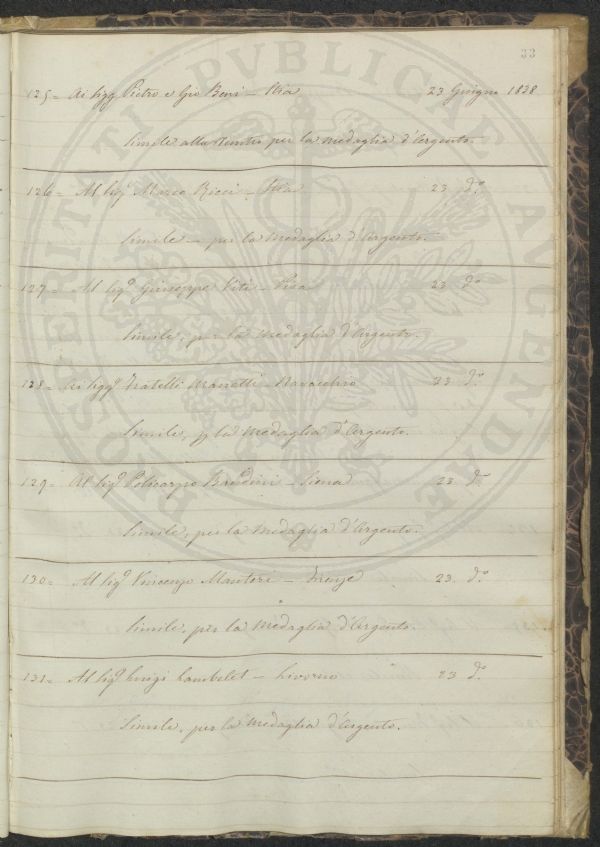 33
125= Ai Sigg.i Pietro e Gio Beni - Stia 23 Giugno 1838
Simile alla per la Medaglia d'Argento.
126= Al Sig.e Marco Ricci - Stia 23 d.o
Simile - per la Medaglia d'Argento.
127= Al Sig.e Giuseppe Viti - Pisa 23 d.o
Simile, per la Medaglia d'Argento.
128= Ai Sigg.i Fratelli Manetti - Navacchio 23 d.o
Simile, p la Medaglia d'Argento.
129= Al Sig.e Policarpo Bandini - Siena 23 d.o
Simile, per la Medaglia d'Argento.
130= Al Sig.e Vincenzo Manteri - Firenze 23 d.o
Simile, per la Medaglia d'Argento.
131= Al Sig.e Luigi Lambelet - Livorno 23 d.o
Simile, per la Medaglia d'Argento.
PROSPERITATI PUBLICAE AUGENDAE